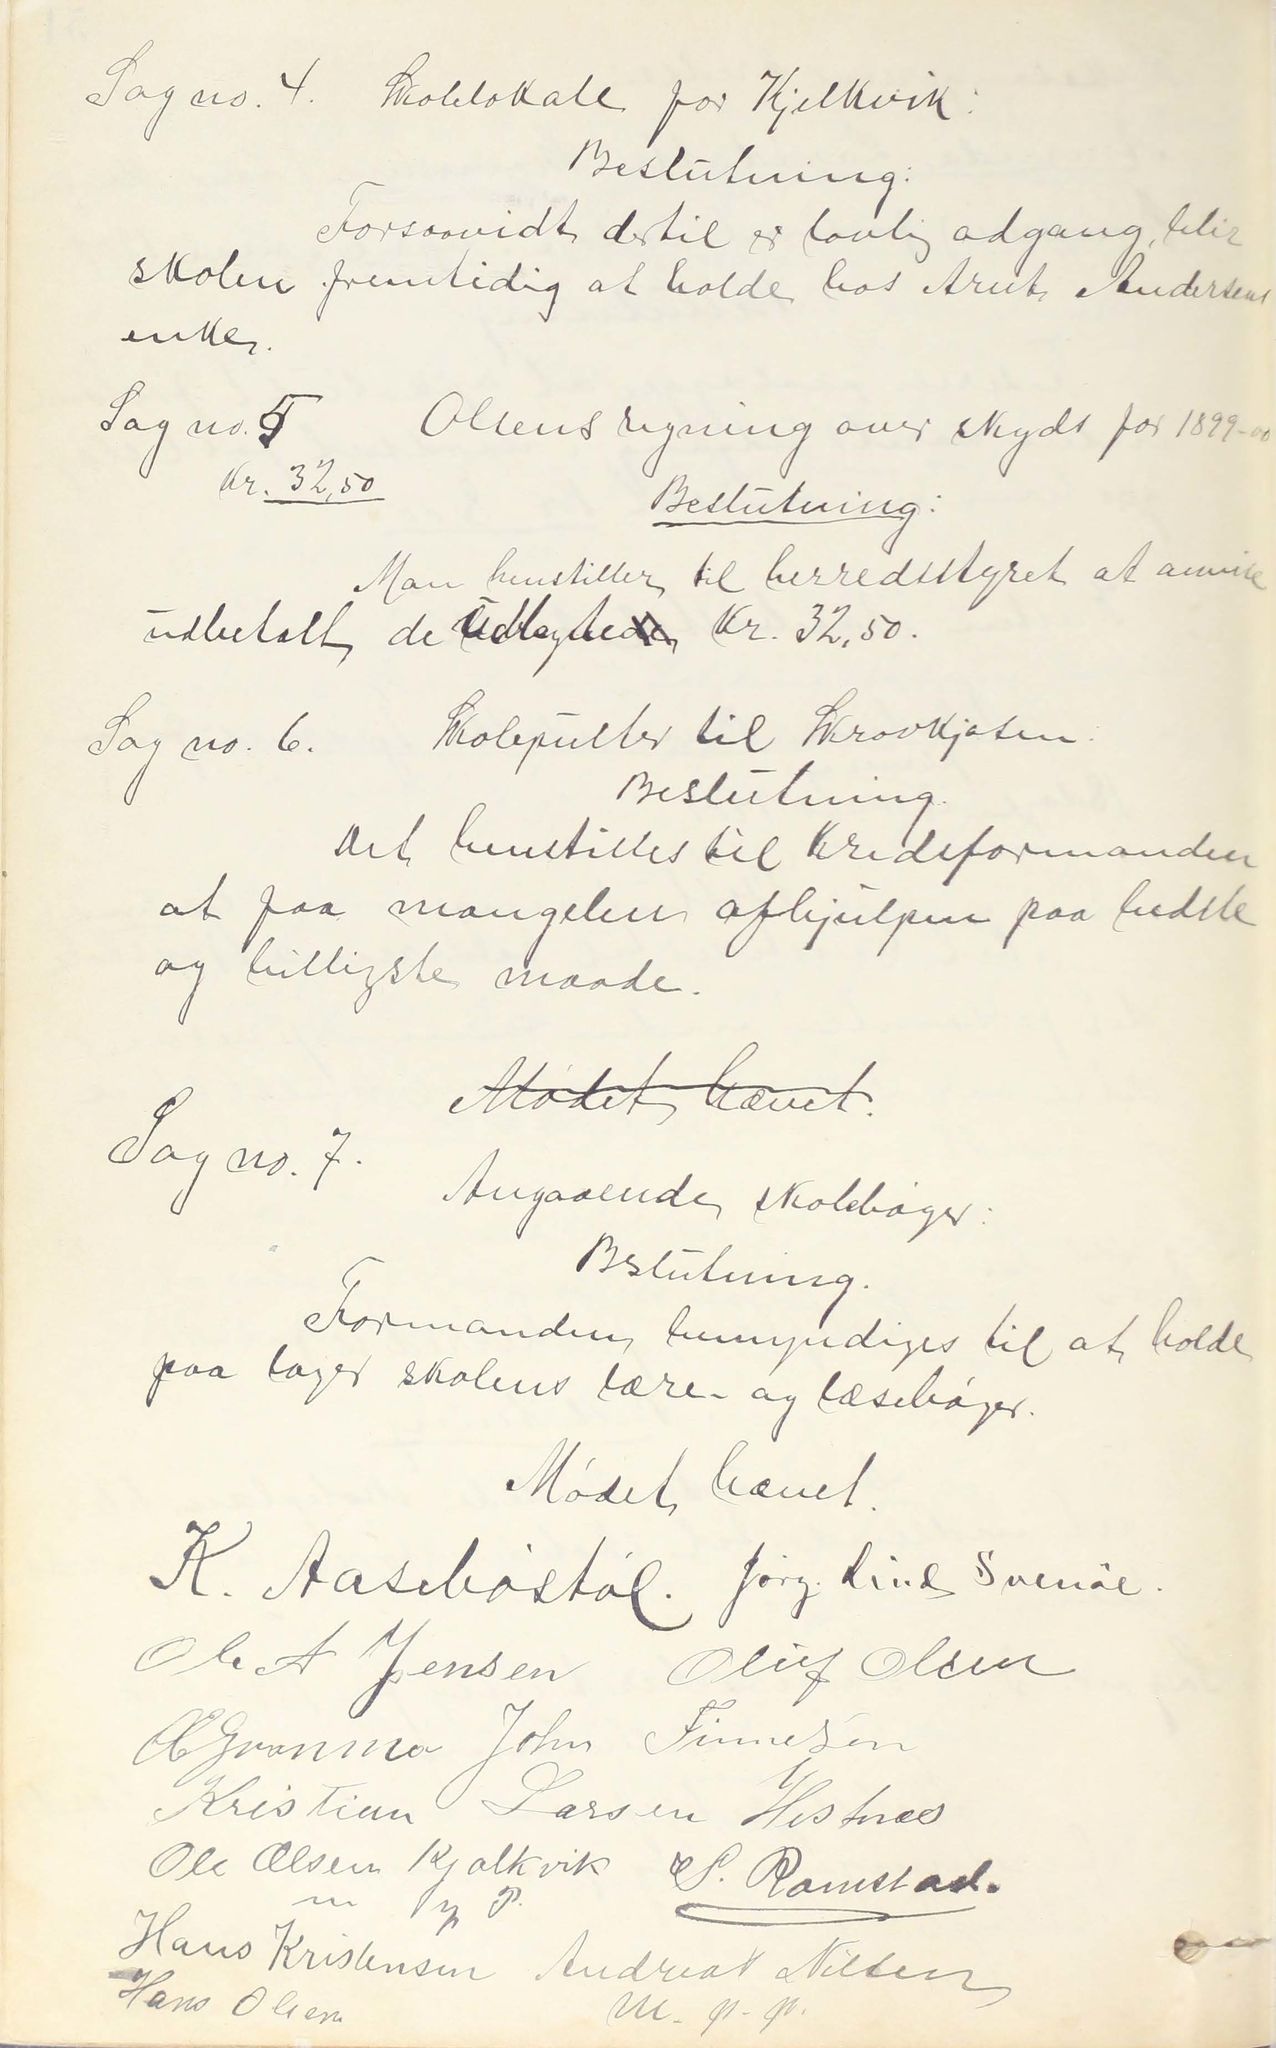 Sag no. 4. Skolelokale for Kjelkvik:
Beslutning:
Forsaavidt dertil er lovlig adgang, blir
skolen fremtidig at holde hos Arnt Andersens
enke.
Sag no. 5 Olsens regning over skyds for 1899-00
Kr. 32,50
Beslutning:
Man henstiller til herredsstyret at anvise
udbetalt de udlagte Kr. 32,50.
Sag no. 6. Skolepulter til Skrovkjosen.
Beslutning.
Det henstilles til Kredsformanden
at faa mangelen afhjulpen paa bedste
og billigste maade.
Mødet hævet.
Sag no. 7.
Angaaende skolebøger:
Beslutning.
Formanden bemyndiges til at holde
paa lager skolens lære- og læsebøger.
Mødet hævet.
K. Aasebøstøl. Jørg. Lind Svenøe.
Ole A Jensen Oluf Olsen
John Finnesen
Kristian Larsen Hestnæs
Ole Olsen Kjelkvik S. Ramstad.
m p P.
Hans Kristensen Andreas Nilsen
Hans Olsen m. p. p.